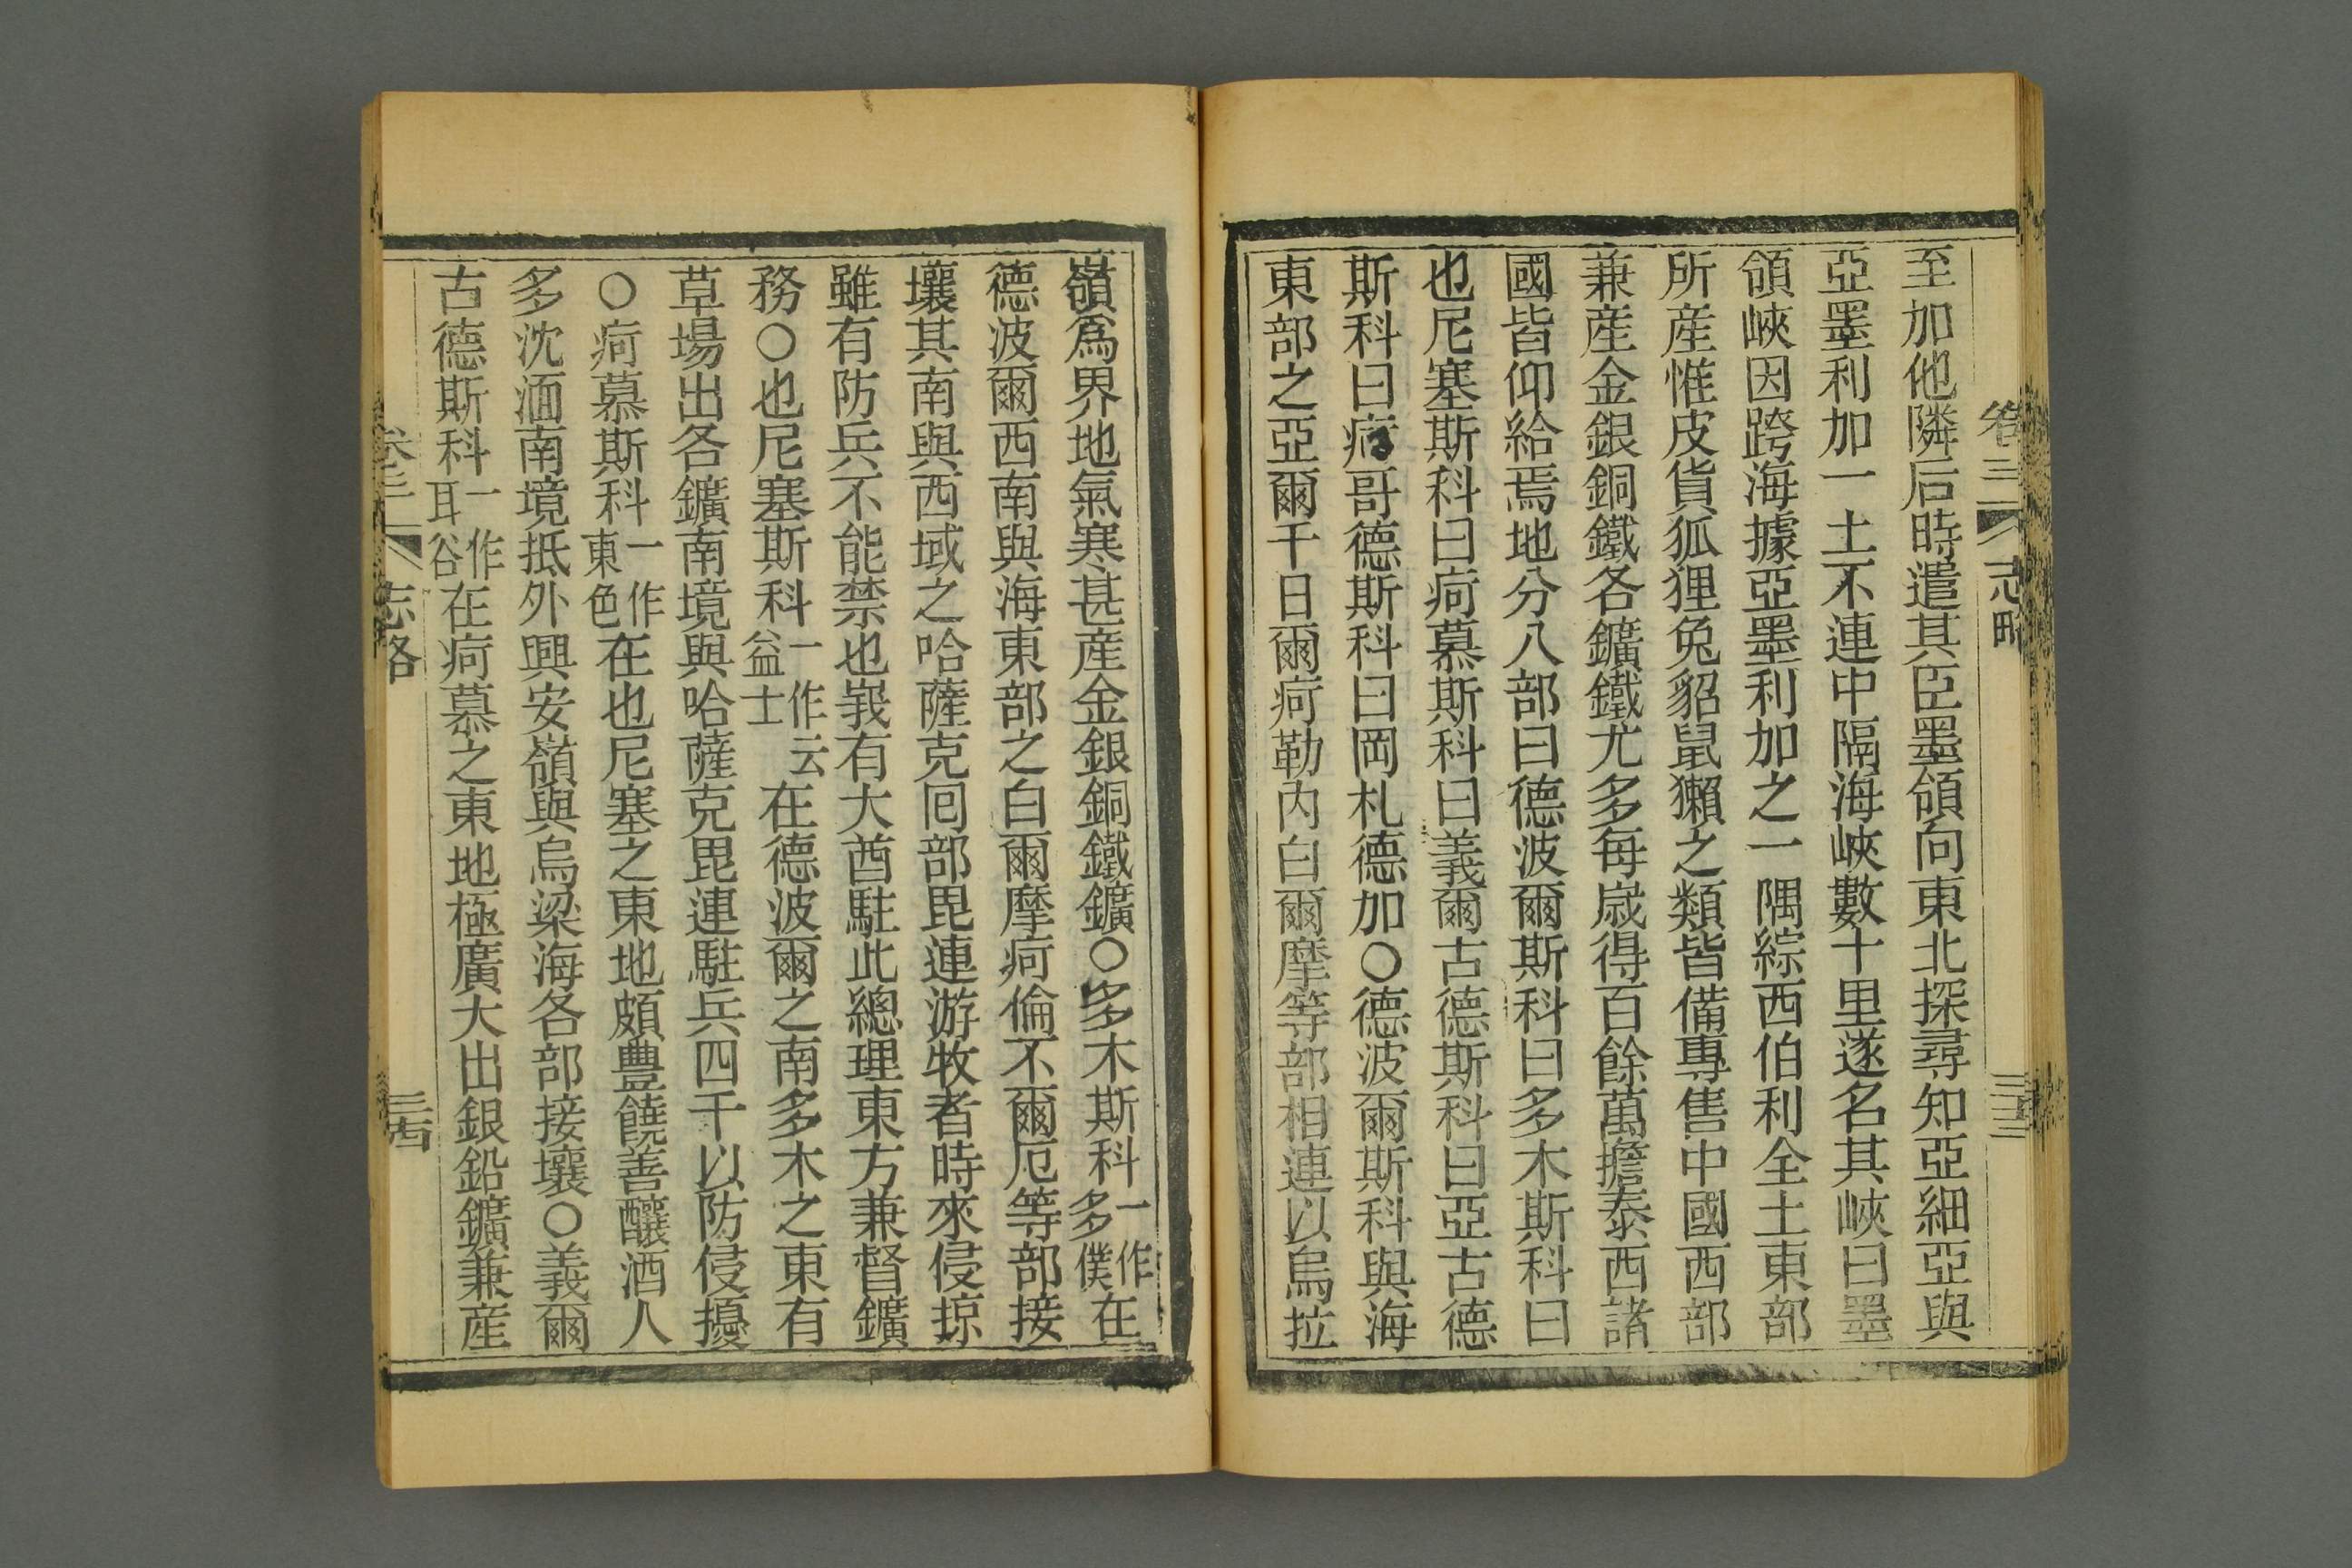 卷三 志略 三三
至加他隣后時遣其臣墨領向東北探尋知亞細亞與
亞墨利加一土不連中隔海峽數十里遂名其峽曰墨
領峽因跨海據亞墨利加之一隅綜西伯利全土東部
所産惟皮貨狐狸兔貂鼠獺之類皆備專售中國西部
兼産金銀銅鐵各鑛鐵尤多每歲得百餘萬擔泰西諸
國皆仰給焉地分八部曰德波爾斯科曰多木斯科曰
也尼塞斯科曰疴慕斯科曰義爾古德斯科曰亞古德
斯科曰疴哥德斯科曰岡札德加○德波爾斯科與海
東部之亞爾干日爾疴勒內白爾摩等部相連以烏拉
嶺爲界地氣寒甚産金銀銅鐵鑛○多木斯科一作多僕在
德波爾西南與海東部之白爾摩疴倫不爾厄等部接
壤其南與西域之哈薩克囘部毘連游牧者時來侵掠
雖有防兵不能禁也峩有大酋駐此總理東方兼督鑛
務○也尼塞斯科一作云益士在德波爾之南多木之東有
草場出各鑛南境與哈薩克毘連駐兵四千以防侵擾
○疴慕斯科一作東色在也尼塞之東地頗豐饒善釀酒人
多沈湎南境抵外興安嶺與烏梁海各部接壤○義爾
古德斯科一作耳谷在疴慕之東地極廣大出銀鉛鑛兼産
卷三 志略 三四